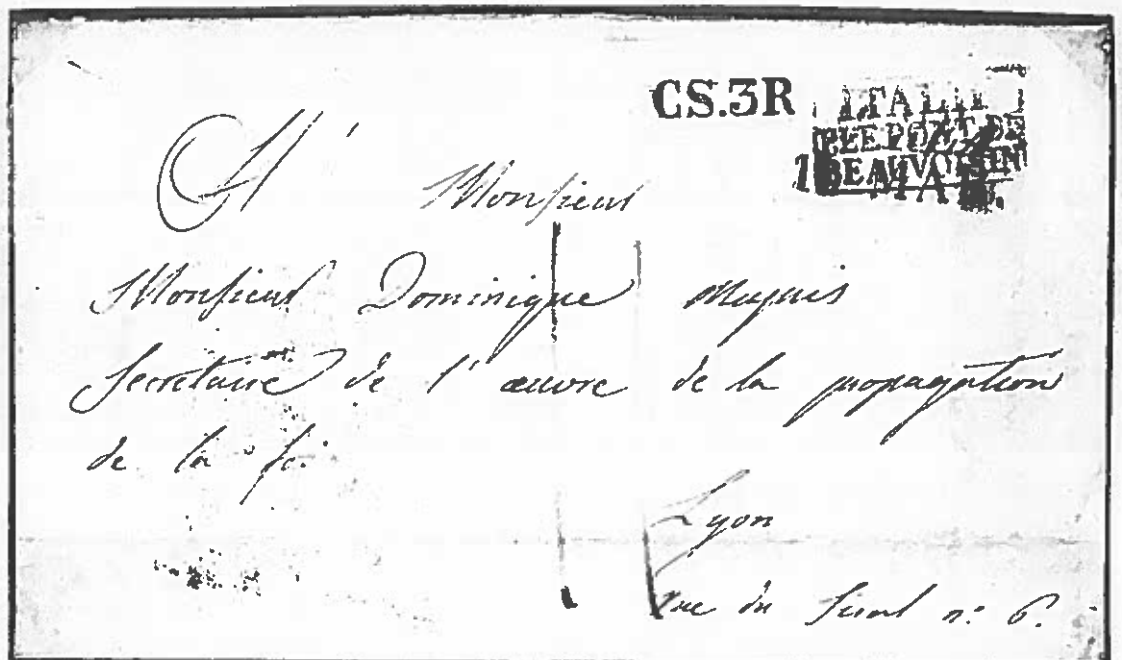 CS.3R
ITALIE
PAR LE PONT DE
BEAUVOISIN
A Monsieur
Monsieur Dominique
Secretaire de l'œuvre de la propagation
de la foi
Lyon
rue du n: 6.